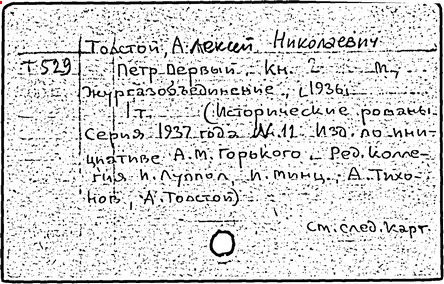 Толстой, Алексей Николаевич
Т 529
Петр Первый. Кн. 2 М.,
Жургазобъединение, [1936]
1 т. (Исторические романы.
Серия 1937 года № 11. Изд. по ини-
циативе А.М. Горького. Ред. колле-
гия И. Луппол, И. Минц, А. Тихо-
нов, А. Толстой)
См. след. карт.